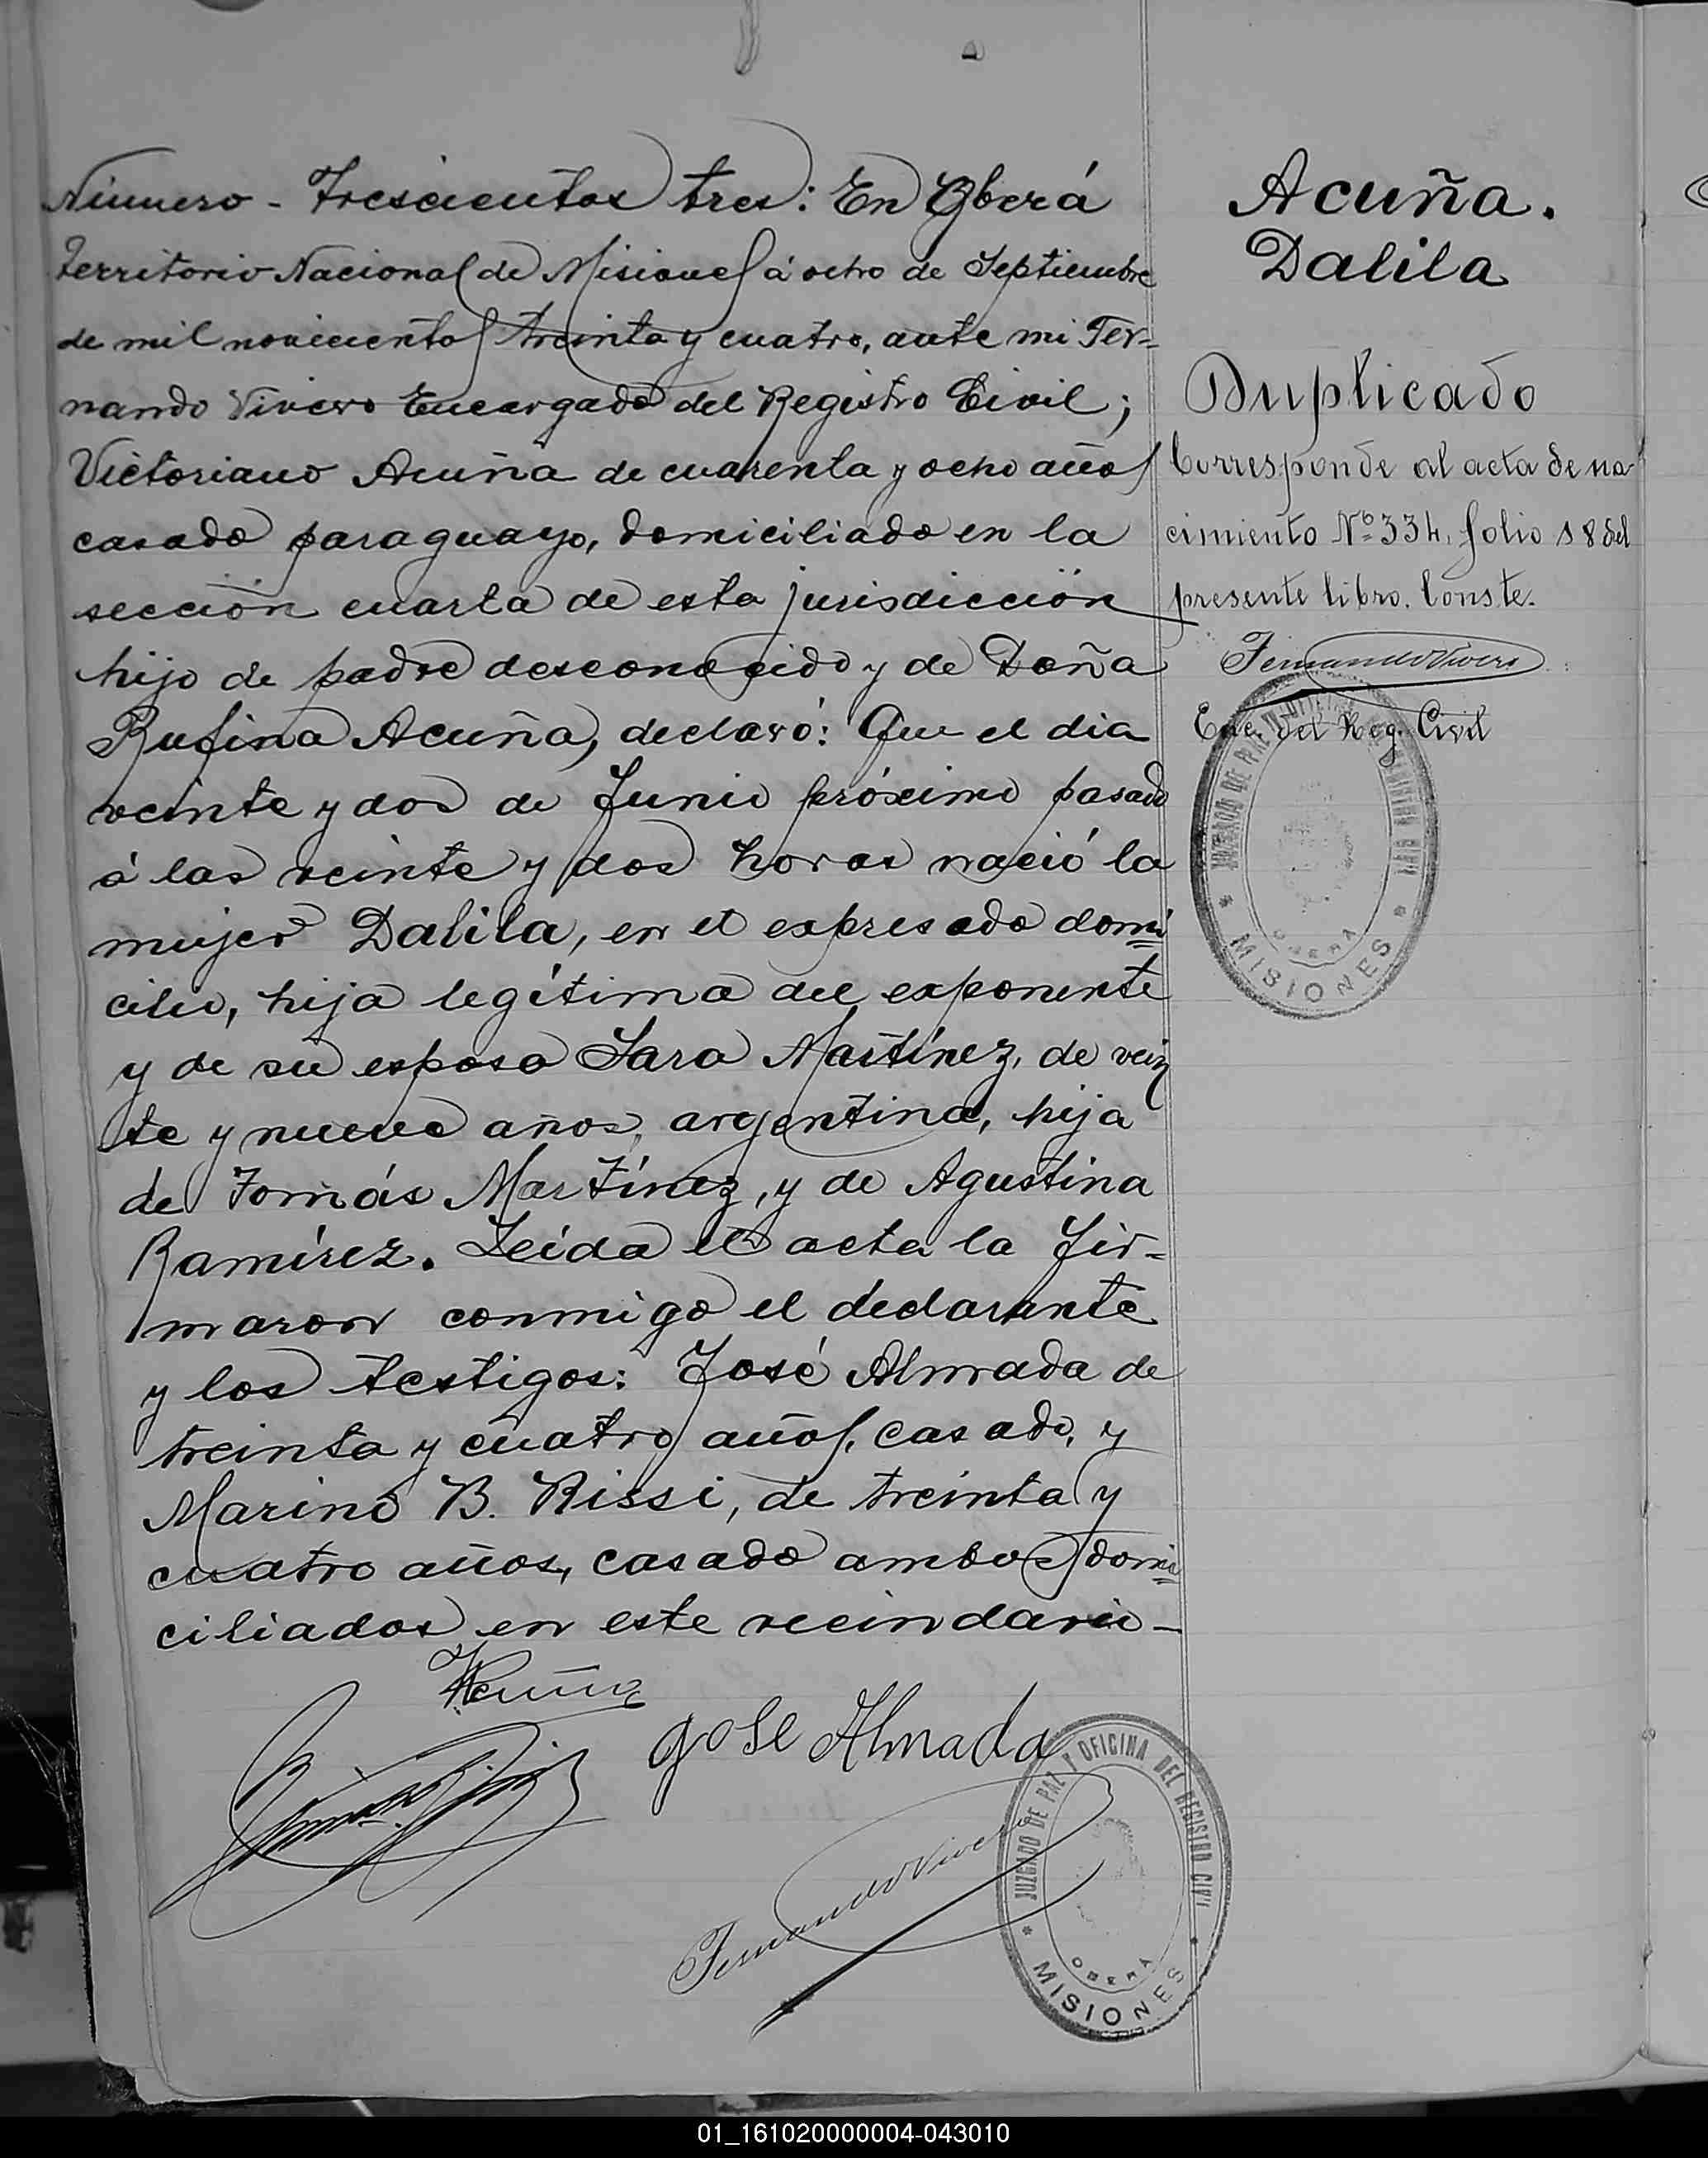 Número - Trescientos tres: En Oberá
Territorio Nacional de Misiones á ocho de Septiembre
de mil novecientos treinta y cuatro, ante mi Fer-
nando Vivero Encargado del Registro Civil;
Victoriano Acuña de cuarenta y ocho años
casado paraguayo, domiciliado en la
sección cuarta de esta jurisdicción
hijo de padre desconocido y de Doña
Rufina Acuña, declaró: Que el dia
veinte y dos de Junio próximo pasado
á las veinte y dos horas nació la
mujer Dalila, en el expresado domi
cilio, hija legítima del exponente
y de su esposa Sara Martínez, de vein
te y nueve años, argentina, hija
de Tomás Martínez, y de Agustina
Ramírez. Leída el acta la fir-
maron conmigo el declarante
y los testigos: José Almada de
treinta y cuatro años, casado, y
Marino B. Rissi, de treinta y
cuatro años, casado ambos domi
ciliados en este vecindario -
Acuña
Jose Almada
Fernando Vivero
JUZGADO DE PAZ Y OFICINA DEL REGISTRO CIVIL
OBERÁ
MISIONES
Acuña.
Dalila
Duplicado
Corresponde al acta de na
cimiento Nº 334, folio 18 del
presente libro. Conste.
Fernando Vivero
Enc. del Reg. Civil
JUZGADO DE PAZ Y OFICINA DEL REGISTRO CIVIL
OBERÁ
MISIONES
01_161020000004-043010